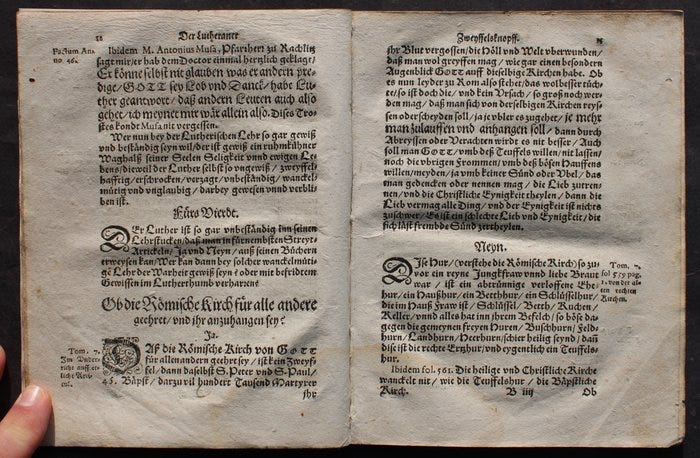 12
Der Lutheraner
Factum An.
no. 46.
Ibidem M. Antonius Musa, Pfarrherr zu Rachlitz
sagt mir/er hab dem Doctor einmal hertzlich geklagt/
Er könne selbst nit glauben was er andern pre-
dige/ GOTT sey Lob vnd Danck/ habe Lu-
ther geantwort/ daß andern Leuten auch also
gehet/ ich meynet mir wär allein also. Dises Tro-
stes kondt Musa nit vergessen.
Wer nun bey der Lutherischen Lehr so gar gewiß
vnd beständig seyn wil/der ist gewiß ein ruhmkühner
Waghalß seiner Seelen Seligkeit vnnd ewigen Le-
bens/dieweil der Luther selbst so vngewiß/ zweyffel-
hafftig/erschrocken/ verzagt/ vnbeständig/ wanckel-
mütig vnd vnglaubig/ darbey gewesen vnnd verbli
ben ist.
Fürs Vierdt.
DEr Luther ist so gar vnbeständig inn seinen
Lehrstucken/daß man in fürnembsten Streyt-
Artickeln/ Ja vnd Neyn/ auß seinen Büchern
erweysen kan/ Wer kan dann bey solcher wanckelmüti-
ge Lehr der Warheit gewiß seyn? oder mit befridtem
Gewissen im Lutherthumb verharren?
Ob die Römische Kirch für alle andere
geehret/ vnd jhr anzuhangen sey?
Ja.
Tom. 7.
DAß die Römische Kirch von GOTT
für allen andern geehrt sey/ ist kein Zweyf-
fel/ dann daselbst S. Peter vnd S. Paul/
46. Bäpst/ darzu vil hundert Tausend Martyrer
jhr
Zweyffelsknopff.
13
jhr Blut vergossen/die Höll vnd Welt vberwunden/
daß man wol greyffen mag/ wie gar einen besondern
Augenblick GOTT auff dieselbige Kirchen habe. Ob
es nun leyder zu Rom also stehet/das wol besser tüch-
te/ so ist doch die/ vnd kein Vrsach/ so groß noch wer-
den mag/ daß man sich von derselbigen Kirchen reys-
sen oder scheyden soll/ ja je vbler es zugehet/ je mehr
man zulauffen vnd anhangen soll/ dann durch
Abreyssen oder Verachten wirdt es nit besser/ Auch
soll man GOTT/ vmb deß Teuffels willen/ nit lassen/
noch die vbrigen Frommen/ vmb deß bösen Hauffens
willen/meyden/ ja vmb keiner Sünd oder Vbel/ das
man gedencken oder nennen mag/ die Lieb zutren-
nen/ vnd die Christliche Eynigkeit theylen/ dann die
Lieb vermag alle Ding/ vnd der Eynigkeit ist nichts
zuschwer/ Es ist ein schlechte Lieb vnd Eynigkeit/ die
sich läst frembde Sünd zertheylen.
Neyn.
DIse Hur/ (verstehe die Römische Kirch) so zu-
vor ein reyne Jungkfraw vnnd liebe Braut
war/ ist ein abtrünnige verloffene Ehe-
hur/ ein Haußhur/ ein Betthhur/ ein Schlüsselhur/
die im Hauß Fraw ist/ Schlüssel/ Beth/ Kuchen/
Keller/ vnnd alles hat inn jhrem Befelch/ so böse da-
gegen die gemeynen freyen Huren/ Buschhurn/ Feld-
hurn/ Landhurn/ Heerhurn/schier heilig seynd/ dañ
dise ist die rechte Ertzhur/ vnd eygentlich ein Teuffels-
hur.
Tom. 7.
fol 559 pag.
1. von der al-
ten rechten
Kirchen.
Ibidem fol. 561. Die heilige vnd Christliche Kirche
wanckelt nit/ wie die Teuffelshur/ die Bäpstliche
Kirch.
B iiij
Ob